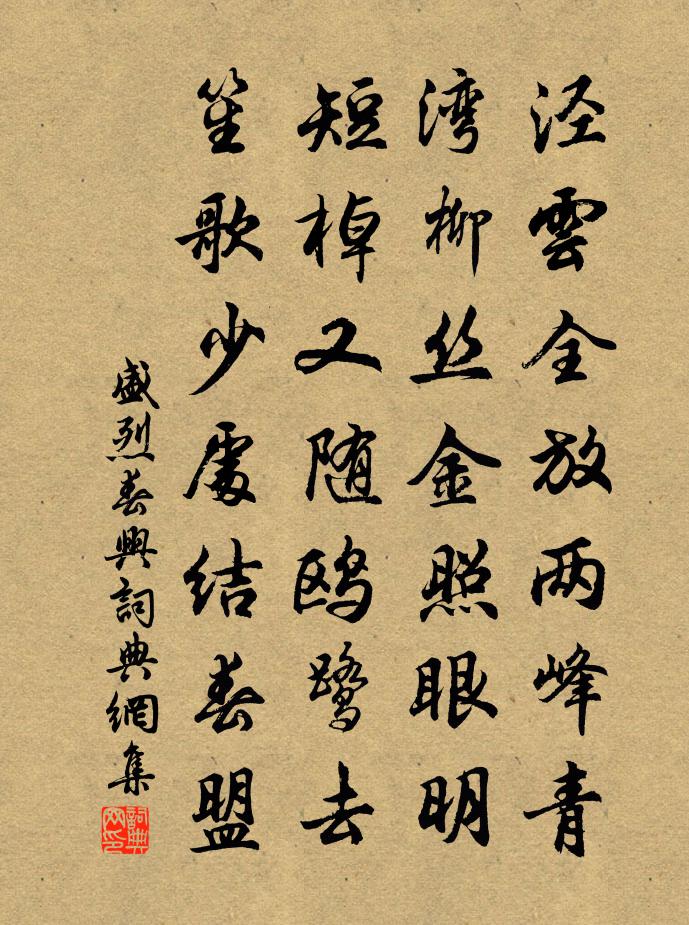 泾雲全放两峰青
湾柳丝金照眼明
短棹又随鸥鹭去
笙歌少處结春盟
盛烈春興詞典網集
詞典网印